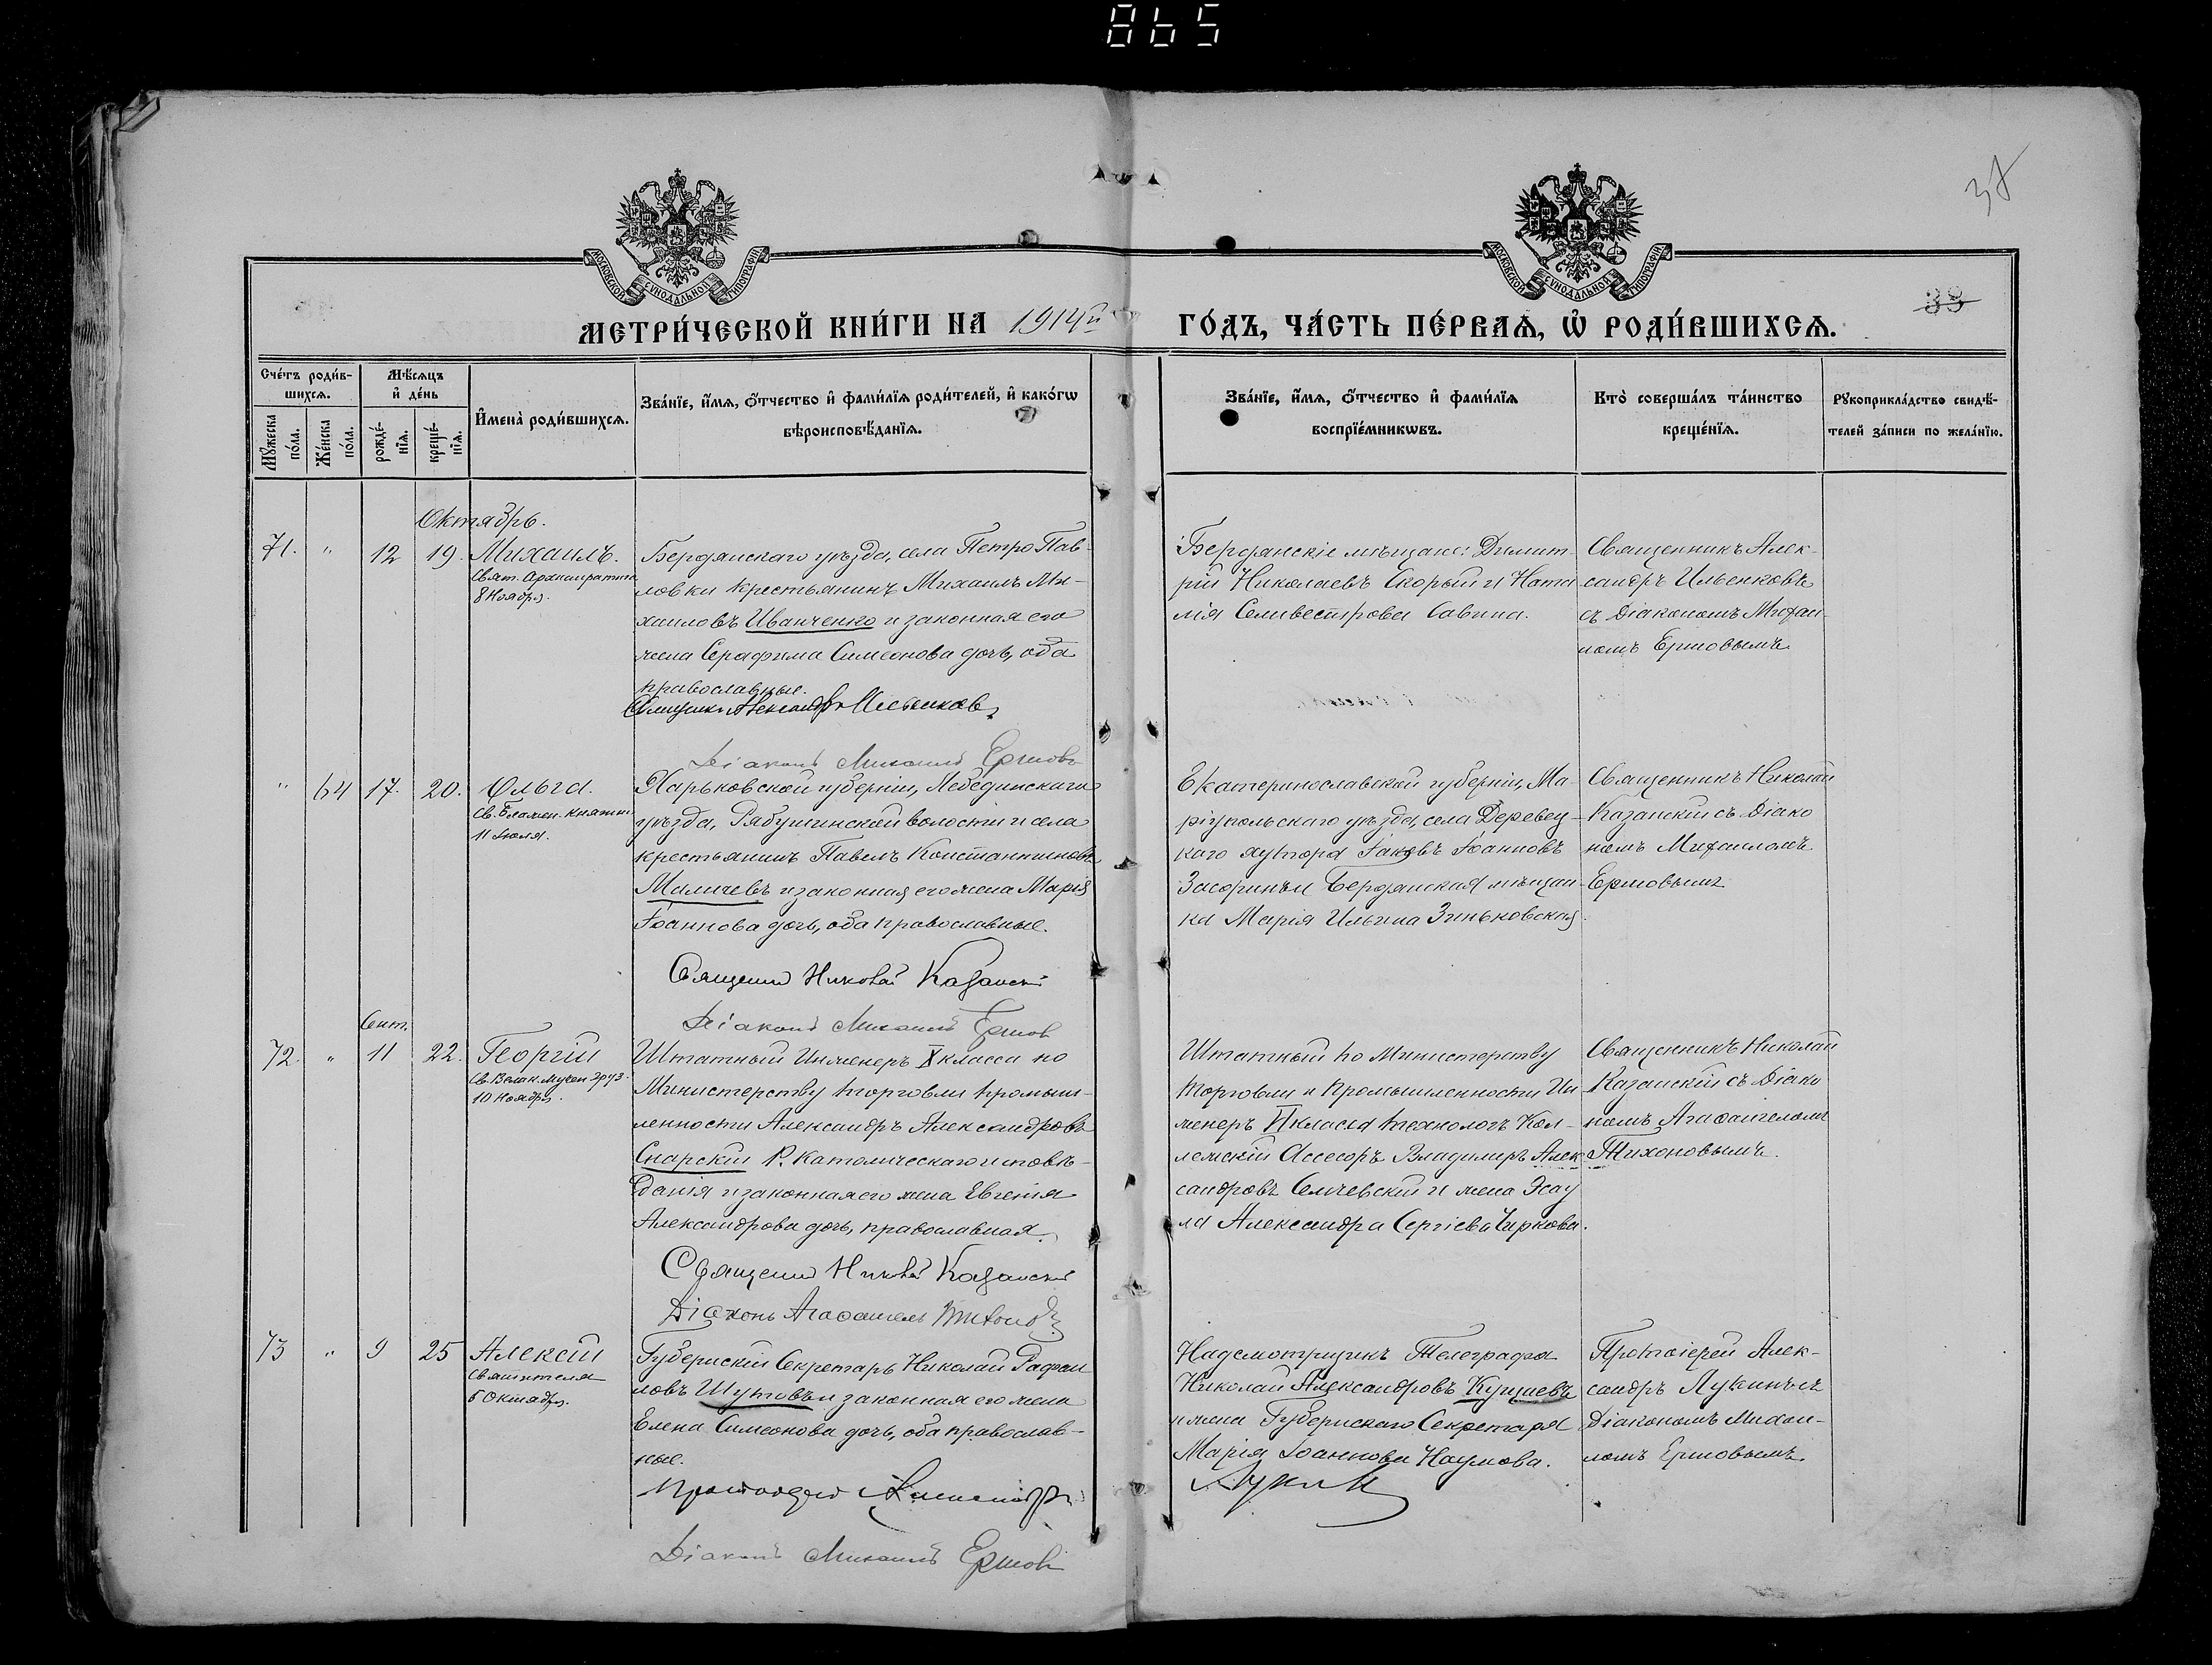 865
37
38
МОСКОВСКОЙ СѴНОДАЛЬНОЙ ТИПОГРАФІИ
МОСКОВСКОЙ СѴНОДАЛЬНОЙ ТИПОГРАФІИ
МЕТРИ́ЧЕСКОЙ КНИ́ГИ НА 1914й
ГО́ДЪ, ЧА́СТЬ ПЕ́РВАѦ, Ѡ҆ РОДИ́ВШИХСѦ.
Сче́тъ роди́в-
шихсѧ.
Мꙋ́жеска
по́ла.
Же́нска
по́ла.
Мѣ́сѧцъ
и҆ де́нь
рожде́-
нїѧ.
креще́-
нїѧ.
И҆мена̀ роди́вшихсѧ.
Зва́нїе, и҆́мѧ, ѻ҆́тчество и҆ фами́лїѧ роди́телей, и҆ како́гѡ
вѣроисповѣ́данїѧ.
Зва́нїе, и҆́мѧ, ѻ҆́тчество и҆ фами́лїѧ
воспрїе́мникѡвъ.
Кто̀ соверша́лъ та́инство
креще́нїѧ.
Рꙋкоприкла́дство свидѣ́-
телей за́писи по жела́нїю.
Октябрь.
71. " 12 19. Михаилъ.
Свят. Архистратига
8 Ноября.
Бердянскаго уѣзда, села Петро Пав-
ловки крестьянинъ Михаилъ Ми-
хаиловъ Иванченко и законная его
жена Серафима Симеонова дочь, оба
православные.
Священникъ Александръ Ильенковъ
Діаконъ Михаилъ Ершовъ
Бердянскіе мѣщане: Димит-
рій Николаевъ Скорый и Ната
лія Селивестрова Савина.
Священникъ Алек-
сандръ Ильенковъ
съ Діакономъ Михаи-
ломъ Ершовымъ.
" 64 17. 20. Ольга.
Св. Благов. Княгини
11 Іюля.
Харьковской губерніи, Лебединскаго
уѣзда, Рябушинской волости и села
крестьянинъ Павелъ Константиновъ
Маличевъ и законная его жена Марія
Іоаннова дочь, оба православные.
Священникъ Николай Казанскій
Діаконъ Михаилъ Ершовъ
Екатеринославской губерніи, Ма-
ріупольскаго уѣзда, села Деревец-
каго хутора Іаковъ Іоанновъ
Засоринъ и Бердянская мѣщан-
ка Марія Ильина Зиньковская.
Священникъ Николай
Казанскій съ Діако
номъ Михаиломъ
Ершовымъ
Сент.
72. " 11 22. Георгій
Св. Велик. Мучен. Груз.
10 Ноября.
Штатный Инженеръ X класса по
Министерству торговли промыш-
ленности Александръ Александровъ
Снарскій Р. Католическаго исповѣ-
данія и законная его жена Евгенія
Александрова дочь, православная.
Священникъ Николай Казанскій
Діаконъ Агафангелъ Тихоновъ
Штатный по Министерству
торговли и промышленности Ин
женеръ VI класса технологъ Кол-
лежскій Ассесоръ Владимиръ Алек
сандровъ Селчевскій и жена Эсау
ла Александра Сергіева Чиркова.
Священникъ Николай
Казанскій съ Діако
номъ Агафангеломъ
Тихоновымъ.
73 " 9 25 Алексій
Святителя
5 Октября.
Губернскій Секретарь Николай Рафаи
ловъ Шутовъ и законная его жена
Елена Симеонова дочь, оба православ-
ные.
Протоіерей Александръ
Лукинъ
Діаконъ Михаилъ Ершовъ
Надсмотрщикъ Телеграфа
Николай Александровъ Кущаевъ
и жена Губернскаго Секретаря
Марія Іоаннова Наумова.
Протоіерей Алек-
сандръ Лукинъ съ
Діакономъ Михаи-
ломъ Ершовымъ.